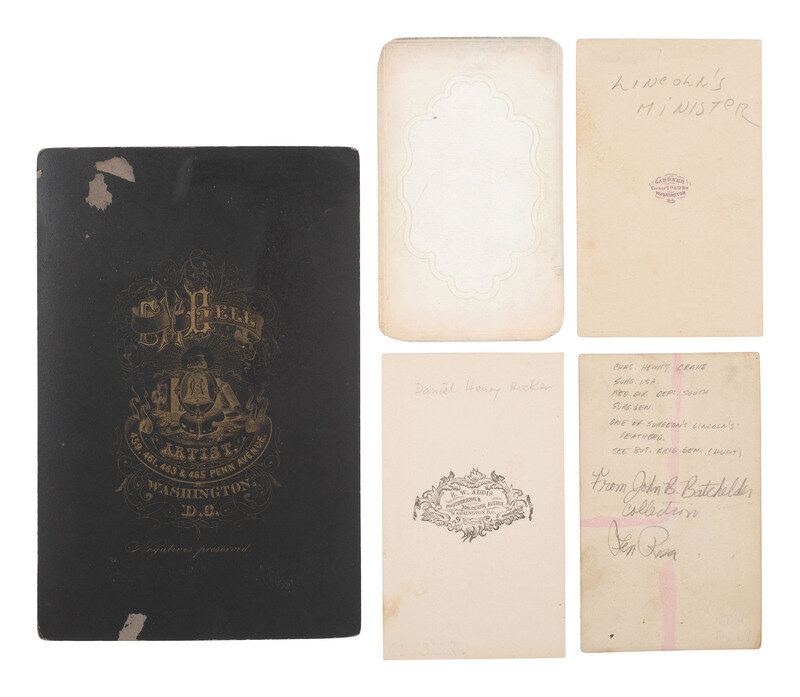 C.M. BELL
ARTIST.
459, 461, 463 & 465 PENN. AVENUE.
WASHINGTON,
D.C.
Negatives preserved.
LINCOLN'S
MINISTER
GARDNER
WASHINGTON
Daniel Henry Rucker
R. W. ADDIS
PHOTOGRAPHER
308 PENNA AVENUE
WASHINGTON D.C.
CHAS. HENRY CRANE
SURG. USA.
MED DIR. DEPT. SOUTH
SURG GEN.
ONE OF SURGEON'S LINCOLN'S
DEATHBED.
SEE BVT. BRIG GEN. (HUNT)
From John B. Batchelder
Collection